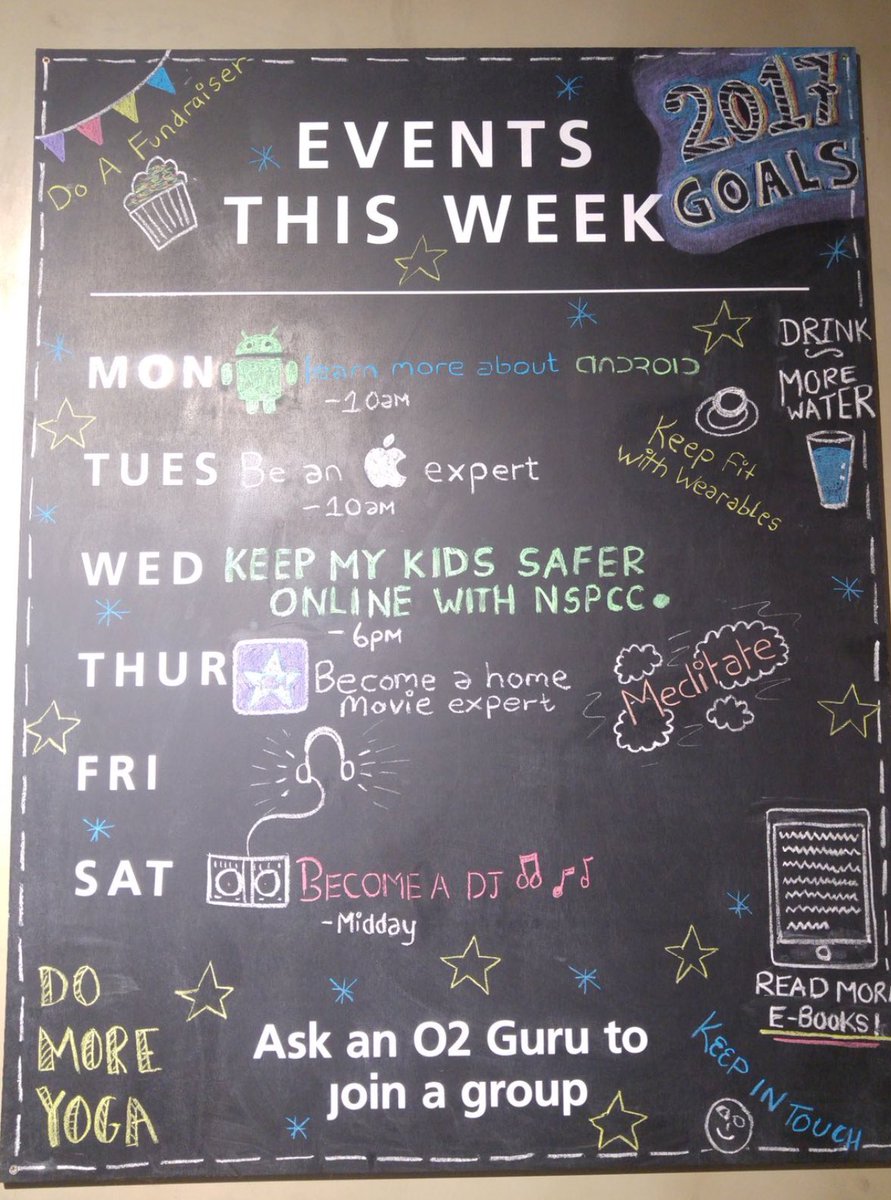 Do A Fundraiser
EVENTS
THIS WEEK
2017
GOALS
MON learn more about ANDROID
-10am
DRINK
MORE
WATER
Keep fit
with wearables
TUES Be an expert
-10am
WED KEEP MY KIDS SAFER
ONLINE WITH NSPCC.
-6PM
THUR Become a home
Movie expert
Meditate
FRI
SAT BECOME A DJ
-Midday
READ MORE
E-BOOKS!
DO
MORE
YOGA
Ask an O2 Guru to
join a group
KEEP IN TOUCH